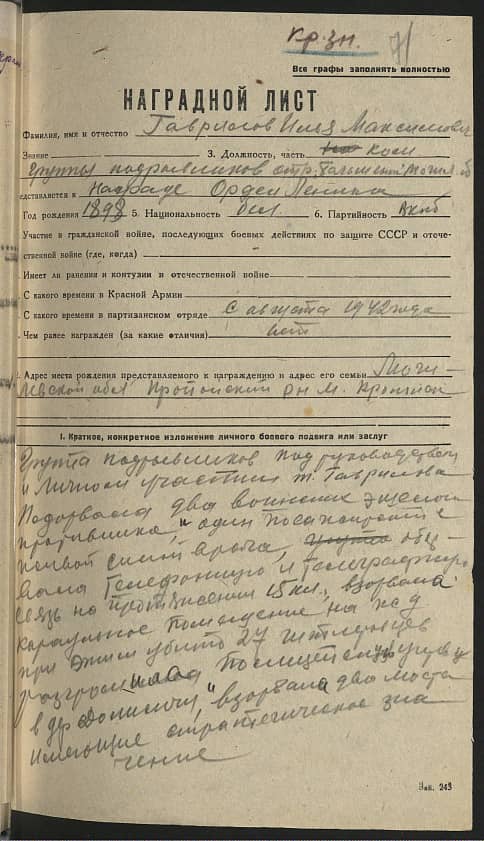 кр. зн.
Все графы заполнять полностью
НАГРАДНОЙ ЛИСТ
Фамилия, имя и отчество Гаврилов Илья Максимович
Звание 3. Должность, часть ком
группы подрывников отр.
редставляется к награде Орден Ленина
Год рождения 1898 5. Национальность бел. 6. Партийность вкпб
Участие в гражданской войне, последующих боевых действиях по защите СССР и отече-
ственной войне (где, когда)
Имеет ли ранения и контузии в отечественной войне
С какого времени в Красной Армии
С какого времени в партизанском отряде с августа 1942 года
Чем ранее награжден (за какие отличия) нет
Адрес места рождения представляемого к награждению и адрес его семьи Моги-
левской обл Пропойский р-н м.
I. Краткое, конкретное изложение личного боевого подвига или заслуг
Группа подрывников под руководством
и личном участии т. Гаврилова
Подорвала два воинских эшелона
противника, один
живой силой врага,
вала Телефонную и телеграфную
связь на протяжении 15 км., взорвала
караульное помещение на ж д
при этом убито 27 гитлеровцев
разгромила Полицейскую управу
в дер , взорвала два моста
имеющие стратегическое зна
чение
Зак. 243